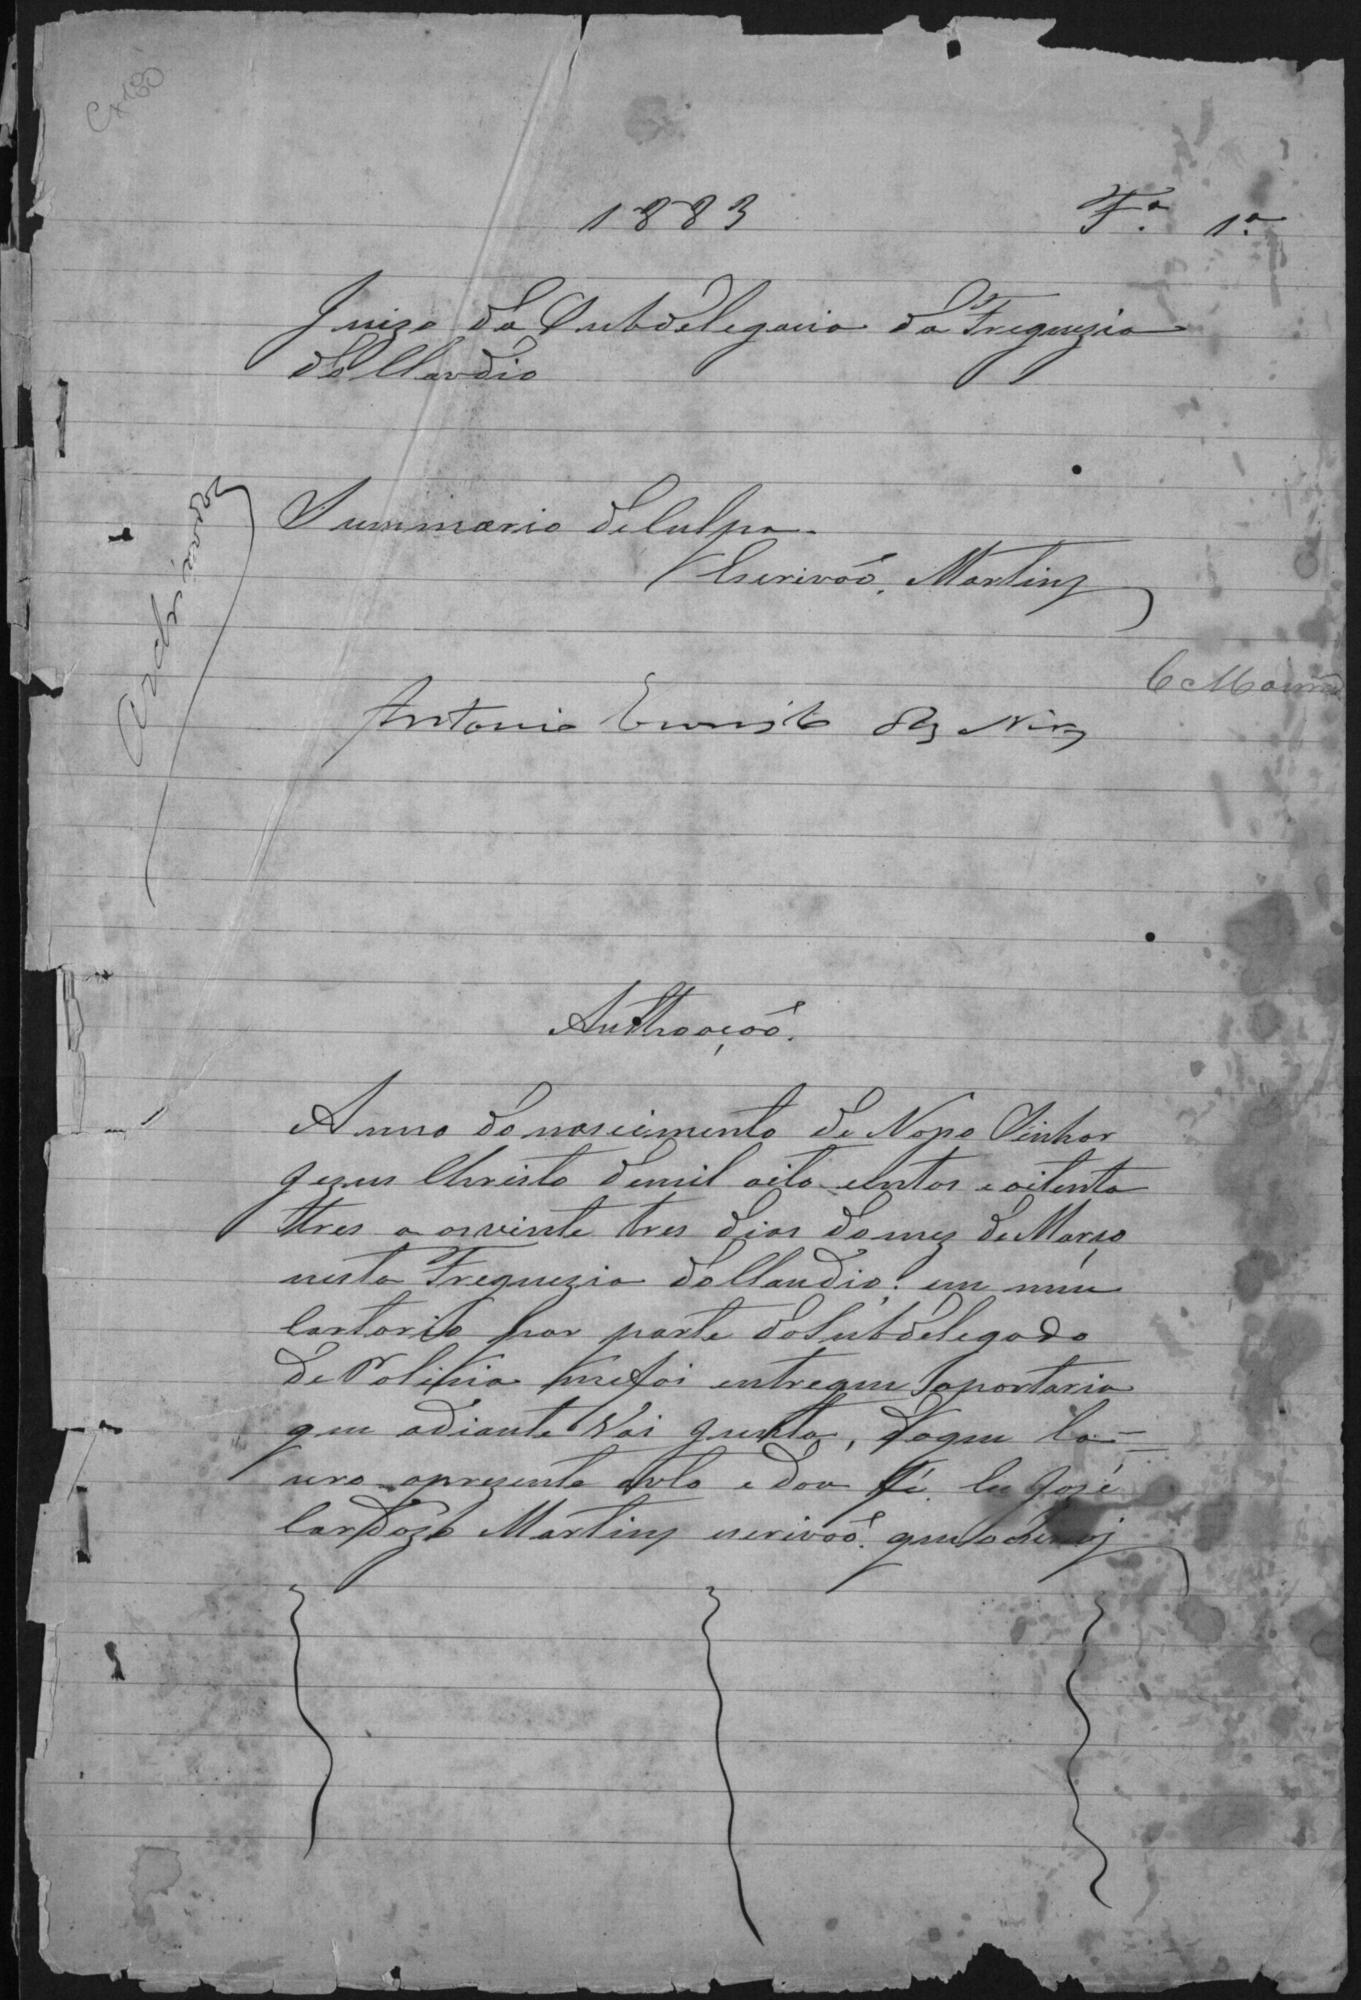 Cx 180
1883 Fª. 1ª
Juizo da Subdelegacia da Freguezia
do Claudio
Summario de Culpa.
Escrivaõ, Martins
Antonio
Authoaçaõ.
Anno do nascimento de Nosso Senhor
Jezus Christo de mil oito centos e oitenta
tres a os vinte tres dias do mez de Março
nesta Freguezia do Claudio; em meu
Cartorio por parte do Subdelegado
de Policia me foi entregue a portaria
que adiante vai junta, do que la=
vro apresente auto e dou fé. Eu José
Cardozo Martins escrivaõ. que o escrevj